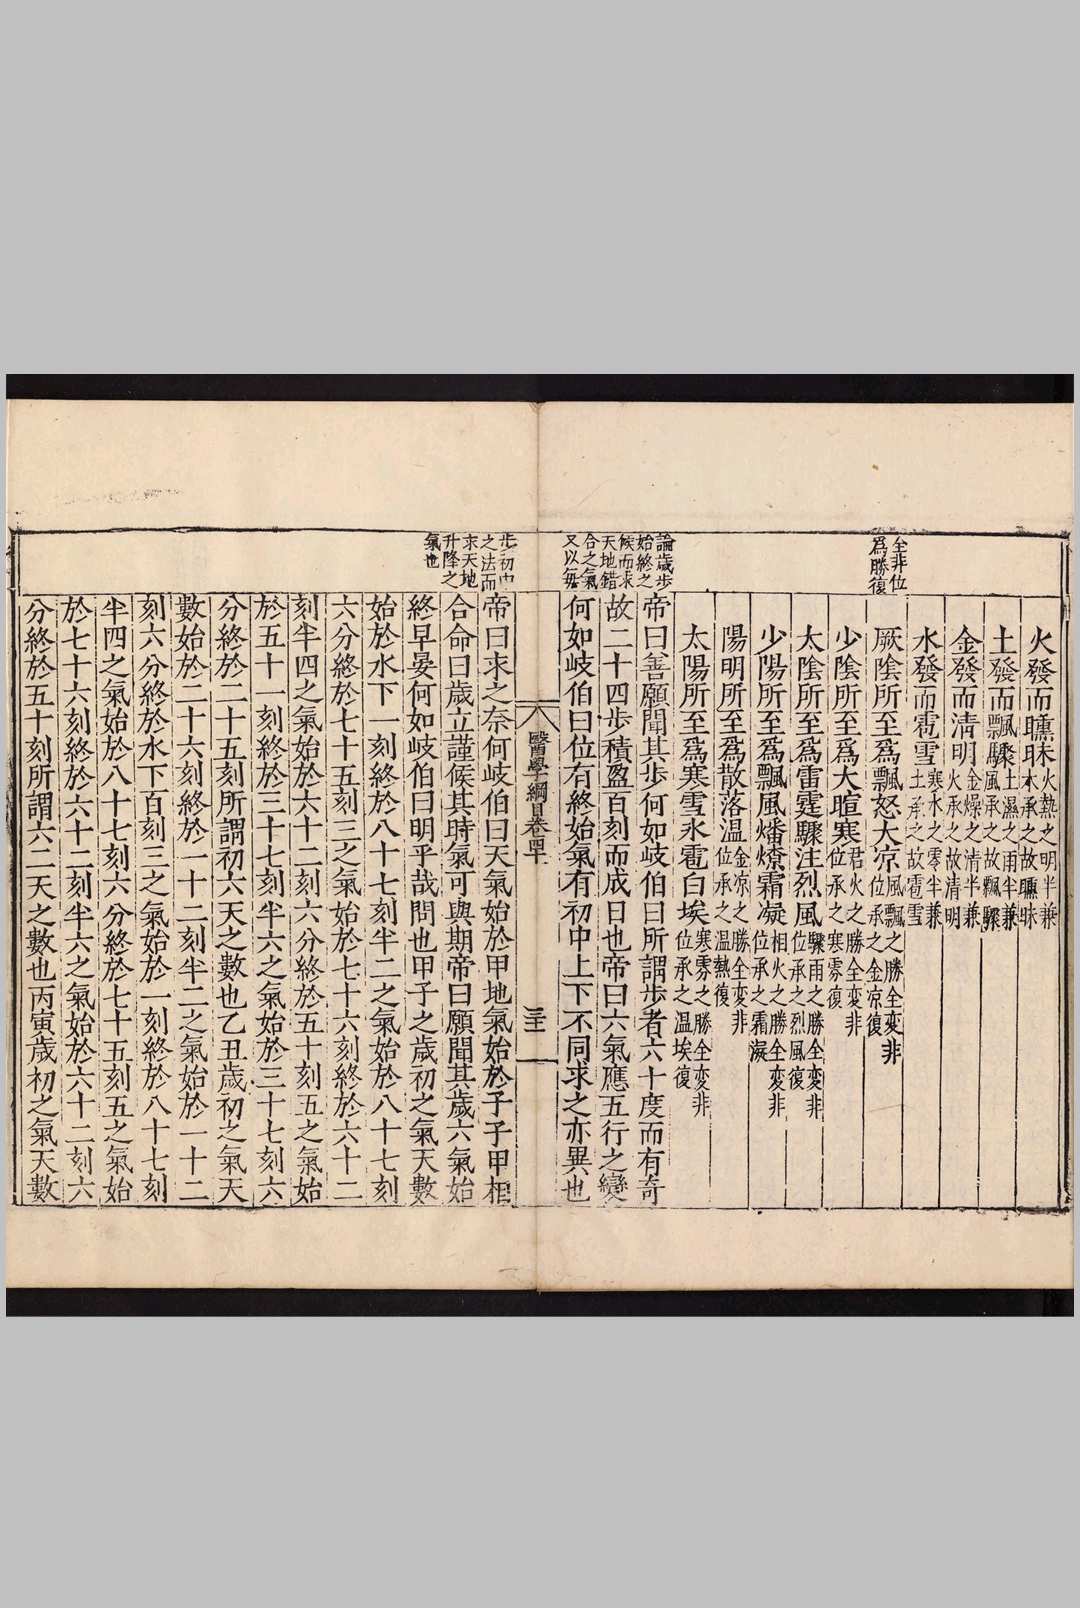 火發而曛昧火熱之明半兼水承之故曛昧
土發而飄驟土濕之雨半兼風承之故飄驟
金發而清明金燥之清半兼火承之故清明
水發而雹雪寒水之零半兼土承之故雹雪
全非位
爲勝復
厥陰所至爲飄怒大凉風飄之勝全変非位承之金凉復
少陰所至爲大暄寒君火之勝全変非位承之寒雰復
太陰所至爲雷霆驟注烈風驟雨之勝全変非位承之烈風復
少陽所至爲飄風燔燎霜凝相火之勝全変非位承之霜凝
陽明所至爲散落温金凉之勝全変非位承之温熱復
太陽所至爲寒雪氷雹白埃寒雰之勝全変非位承之温埃復
論歲步
始終之
候而求
天地錯
合之氣
又以每
帝曰善願聞其步何如岐伯曰所謂步者六十度而有奇
故二十四步積盈百刻而成日也帝曰六氣應五行之變
何如岐伯曰位有終始氣有初中上下不同求之亦異也
醫學綱目卷四十
三十一
步初中
之法而
求天地
升降之
氣也
帝曰求之奈何岐伯曰天氣始於甲地氣始於子子甲相
合命曰歲立謹候其時氣可與期帝曰願聞其歲六氣始
終早晏何如岐伯曰明乎哉問也甲子之歲初之氣天數
始於水下一刻終於八十七刻半二之氣始於八十七刻
六分終於七十五刻三之氣始於七十六刻終於六十二
刻半四之氣始於六十二刻六分終於五十刻五之氣始
於五十一刻終於三十七刻半六之氣始於三十七刻六
分終於二十五刻所謂初六天之數也乙丑歲初之氣天
數始於二十六刻終於一十二刻半二之氣始於一十二
刻六分終於水下百刻三之氣始於一刻終於八十七刻
半四之氣始於八十七刻六分終於七十五刻五之氣始
於七十六刻終於六十二刻半六之氣始於六十二刻六
分終於五十刻所謂六二天之數也丙寅歲初之氣天數